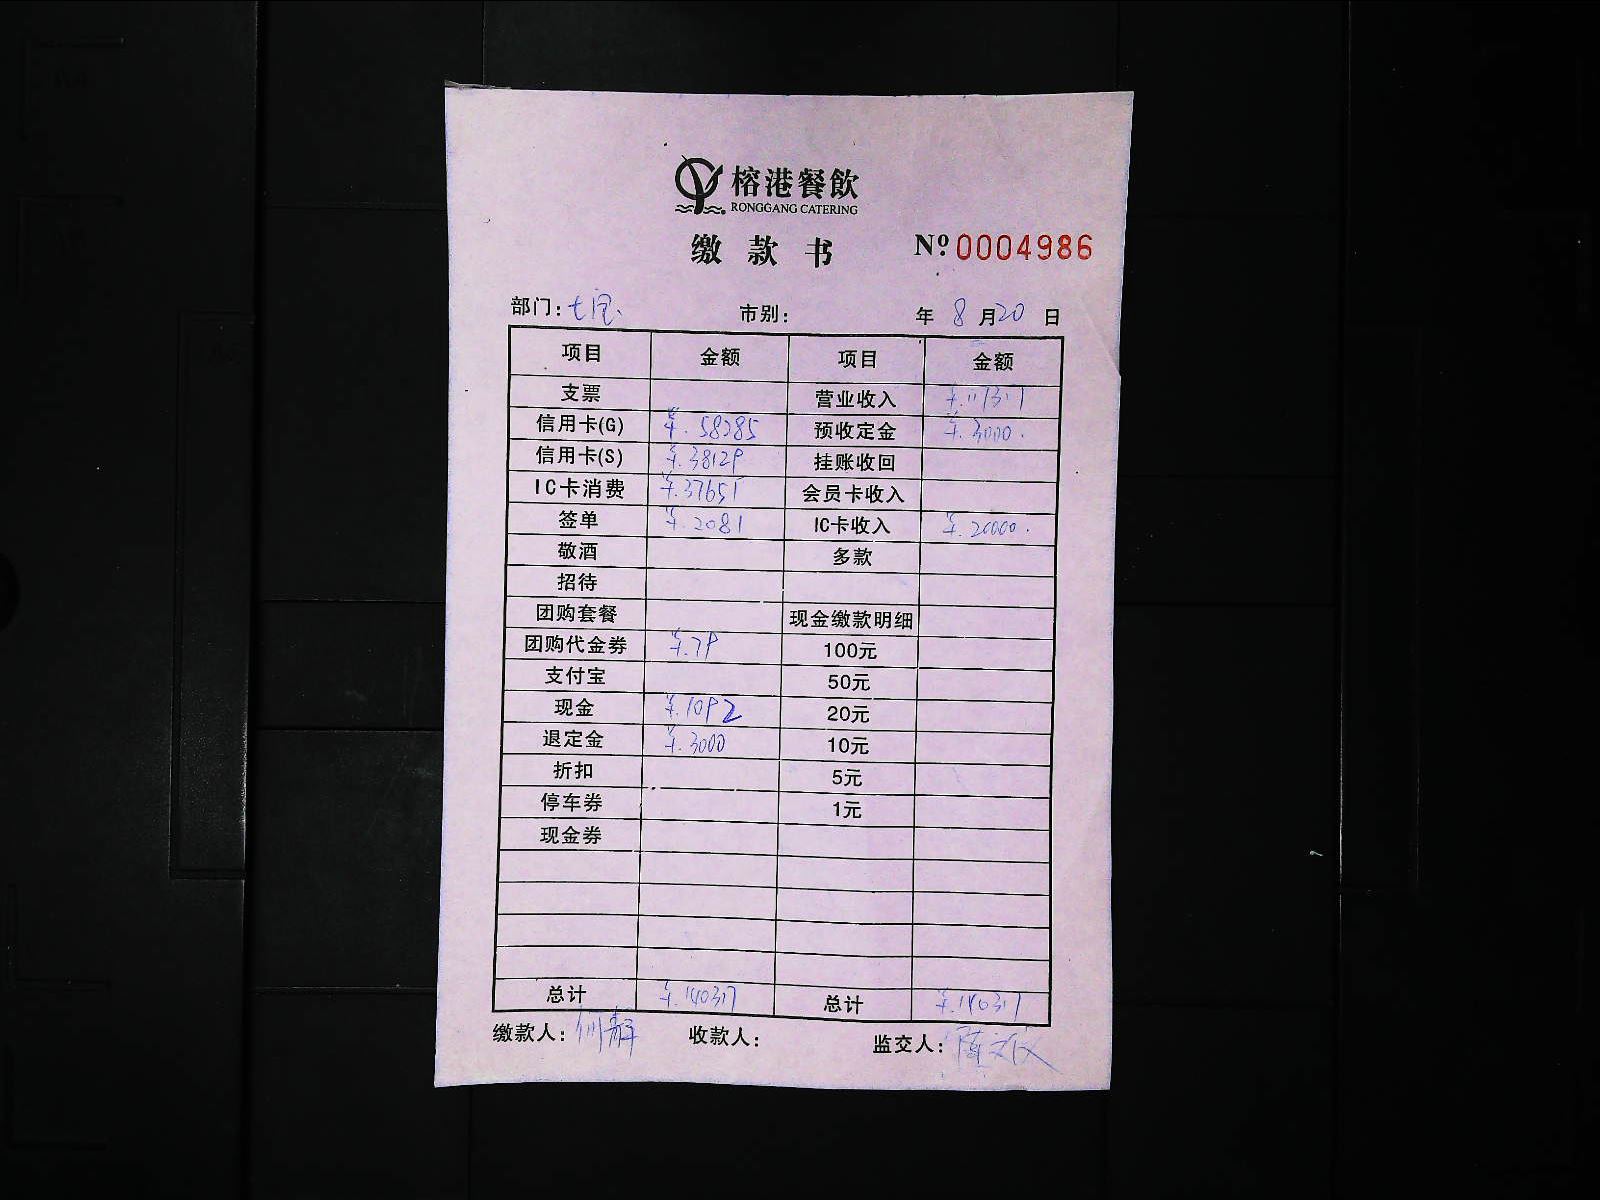 榕港餐飲
RONGGANG CATERING
缴款书 №0004986
部门: 七宝 市别: 年 8 月 20 日
项目 金额 项目 金额
支票 营业收入 ¥.117317
信用卡(G) ¥.58285 预收定金 ¥.3000.
信用卡(S) ¥.38129 挂账收回
IC卡消费 ¥.37651 会员卡收入
签单 ¥.2081 IC卡收入 ¥.20000.
敬酒 多款
招待
团购套餐 现金缴款明细
团购代金券 ¥.79 100元
支付宝 50元
现金 ¥.1092 20元
退定金 ¥.3000 10元
折扣 5元
停车券 1元
现金券
总计 ¥.140317 总计 ¥.140317
缴款人: 何静 收款人: 监交人: